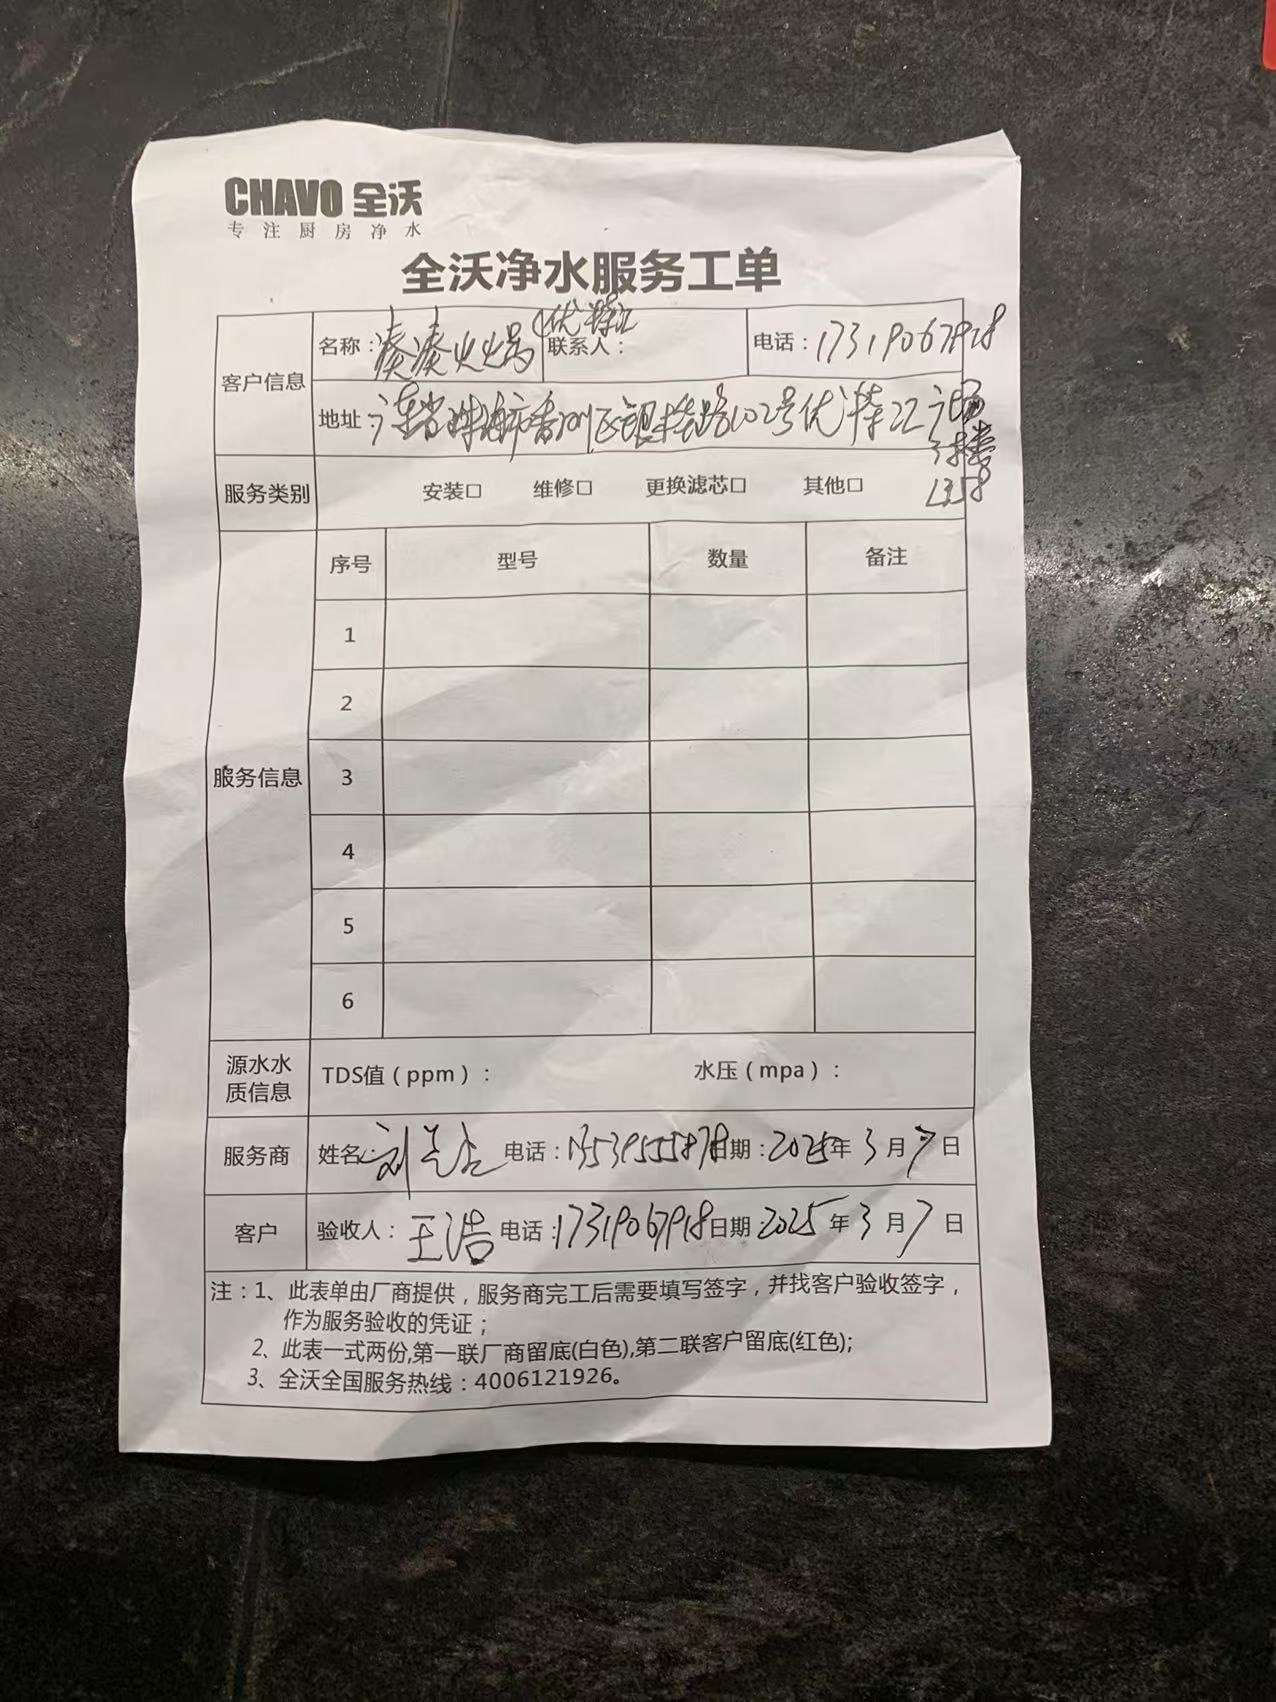 CHAVO 全沃
专注厨房净水
全沃净水服务工单
客户信息
名称：凑凑火火锅（优特汇
联系人：
电话：17319067918
地址：广东省珠海市香洲区银桦路102号优特汇广场
3楼
L358
服务类别 安装□ 维修□ 更换滤芯□ 其他□
服务信息
序号 型号 数量 备注
1
2
3
4
5
6
源水水质信息
TDS值（ppm）： 水压（mpa）：
服务商 姓名：刘 电话：13539555878 日期：2025年3月7日
客户 验收人：王浩 电话：17319067918 日期：2025年3月7日
注：1、此表单由厂商提供，服务商完工后需要填写签字，并找客户验收签字，
作为服务验收的凭证；
2、此表一式两份,第一联厂商留底(白色),第二联客户留底(红色);
3、全沃全国服务热线：4006121926。